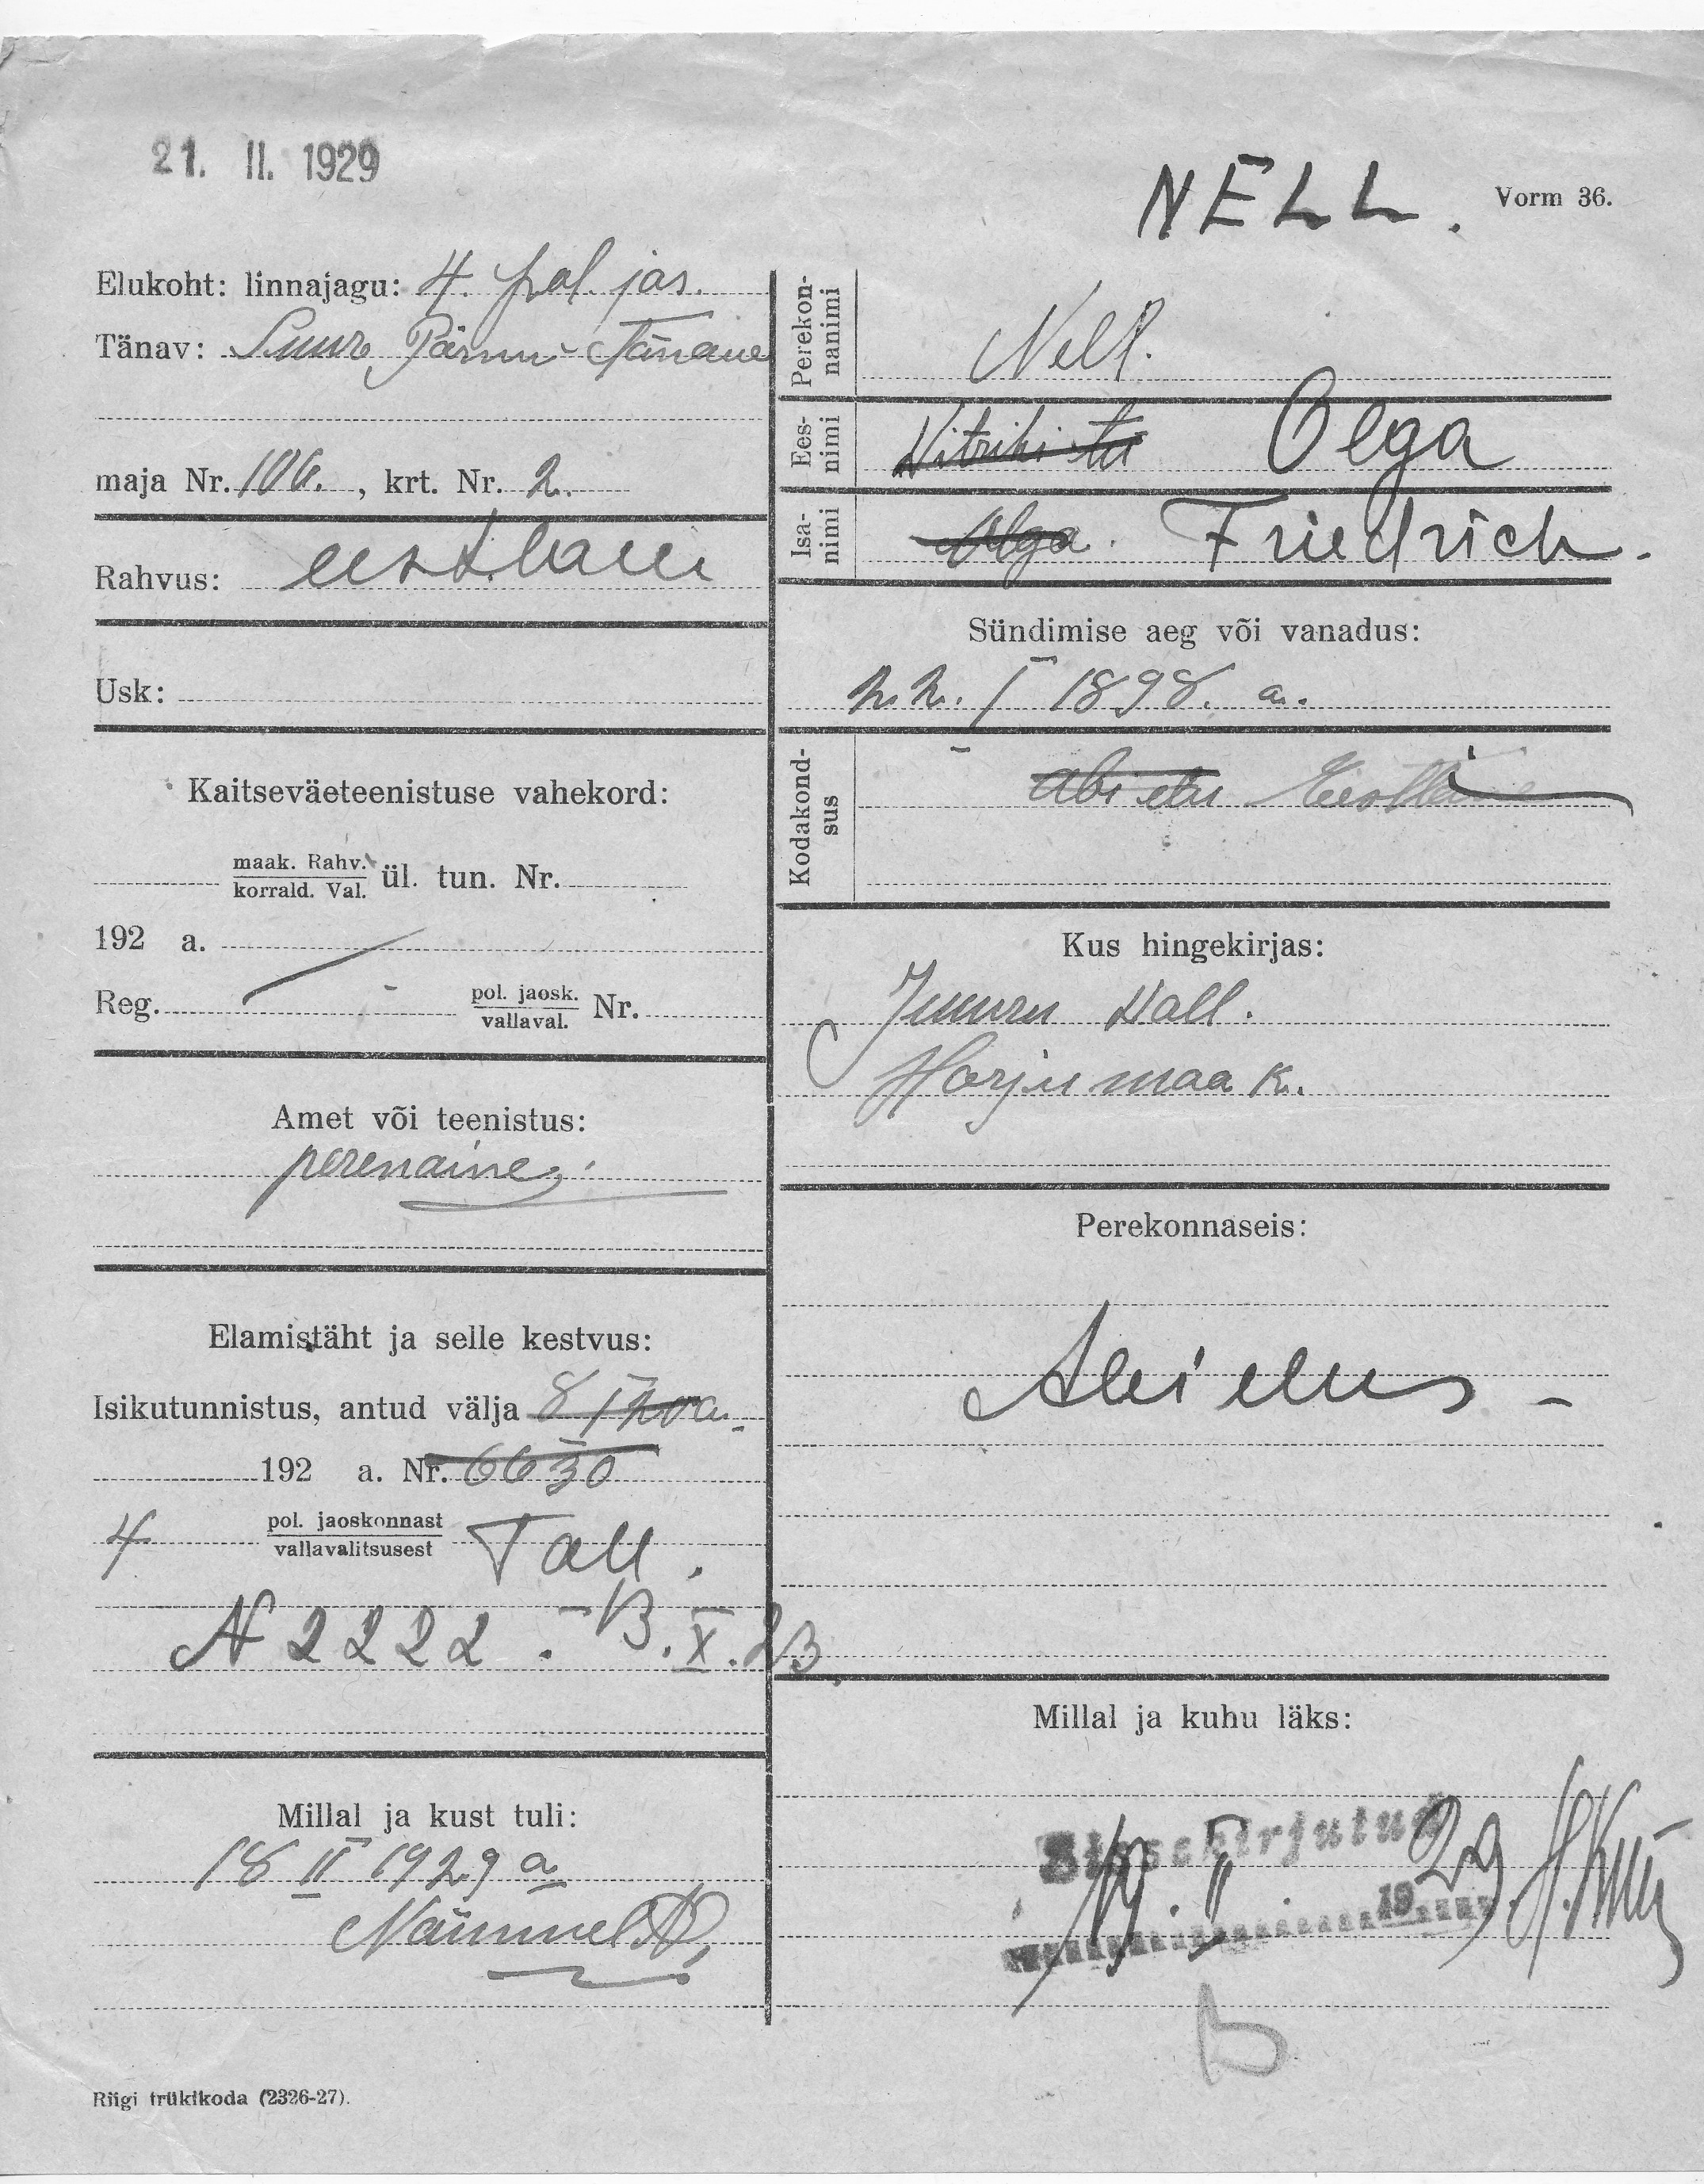 21. II. 1929
NELL.
Vorm 36.
Elukoht: linnajagu: 4. pol. jas.
Tänav: Suur Pärnu Tänav
maja Nr. 106. , krt. Nr. 2.
Rahvus: eestlane
Usk:
Kaitseväeteenistuse vahekord:
maak. Rahv.
korrald. Val.
ül. tun. Nr.
192 a.
Reg.
pol. jaosk.
vallaval.
Nr.
Amet või teenistus:
perenaine
Elamistäht ja selle kestvus:
Isikutunnistus, antud välja 8
192 a. Nr. 6630
4
pol. jaoskonnast
vallavalitsusest
Tall.
N 2222. 13. X. 23
Millal ja kust tuli:
18 II 1929 a
Nõmmelt
Perekon-
nanimi
Nell.
Ees-
nimi
Olga
Isa-
nimi
Olga. Friedrich.
Sündimise aeg või vanadus:
22. I 1898. a.
Kodakond-
sus
abielu Eestl
Kus hingekirjas:
Juuru Vall.
Harju maa k.
Perekonnaseis:
Abielus -
Millal ja kuhu läks:
Sissekirjutud
19. II. 1929
Riigi trükikoda (2326-27).